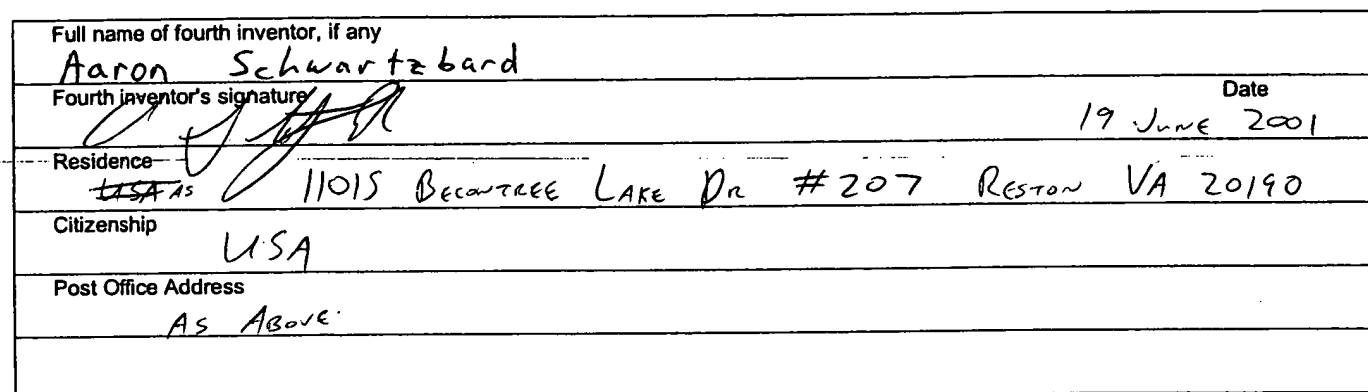 Full name of fourth inventor, if any
Aaron Schwartzbard
Fourth inventor's signature Date
19 June 2001
Residence
USA AS 11015 BECONTREE LAKE DR #207 RESTON VA 20190
Citizenship
USA
Post Office Address
AS ABOVE.